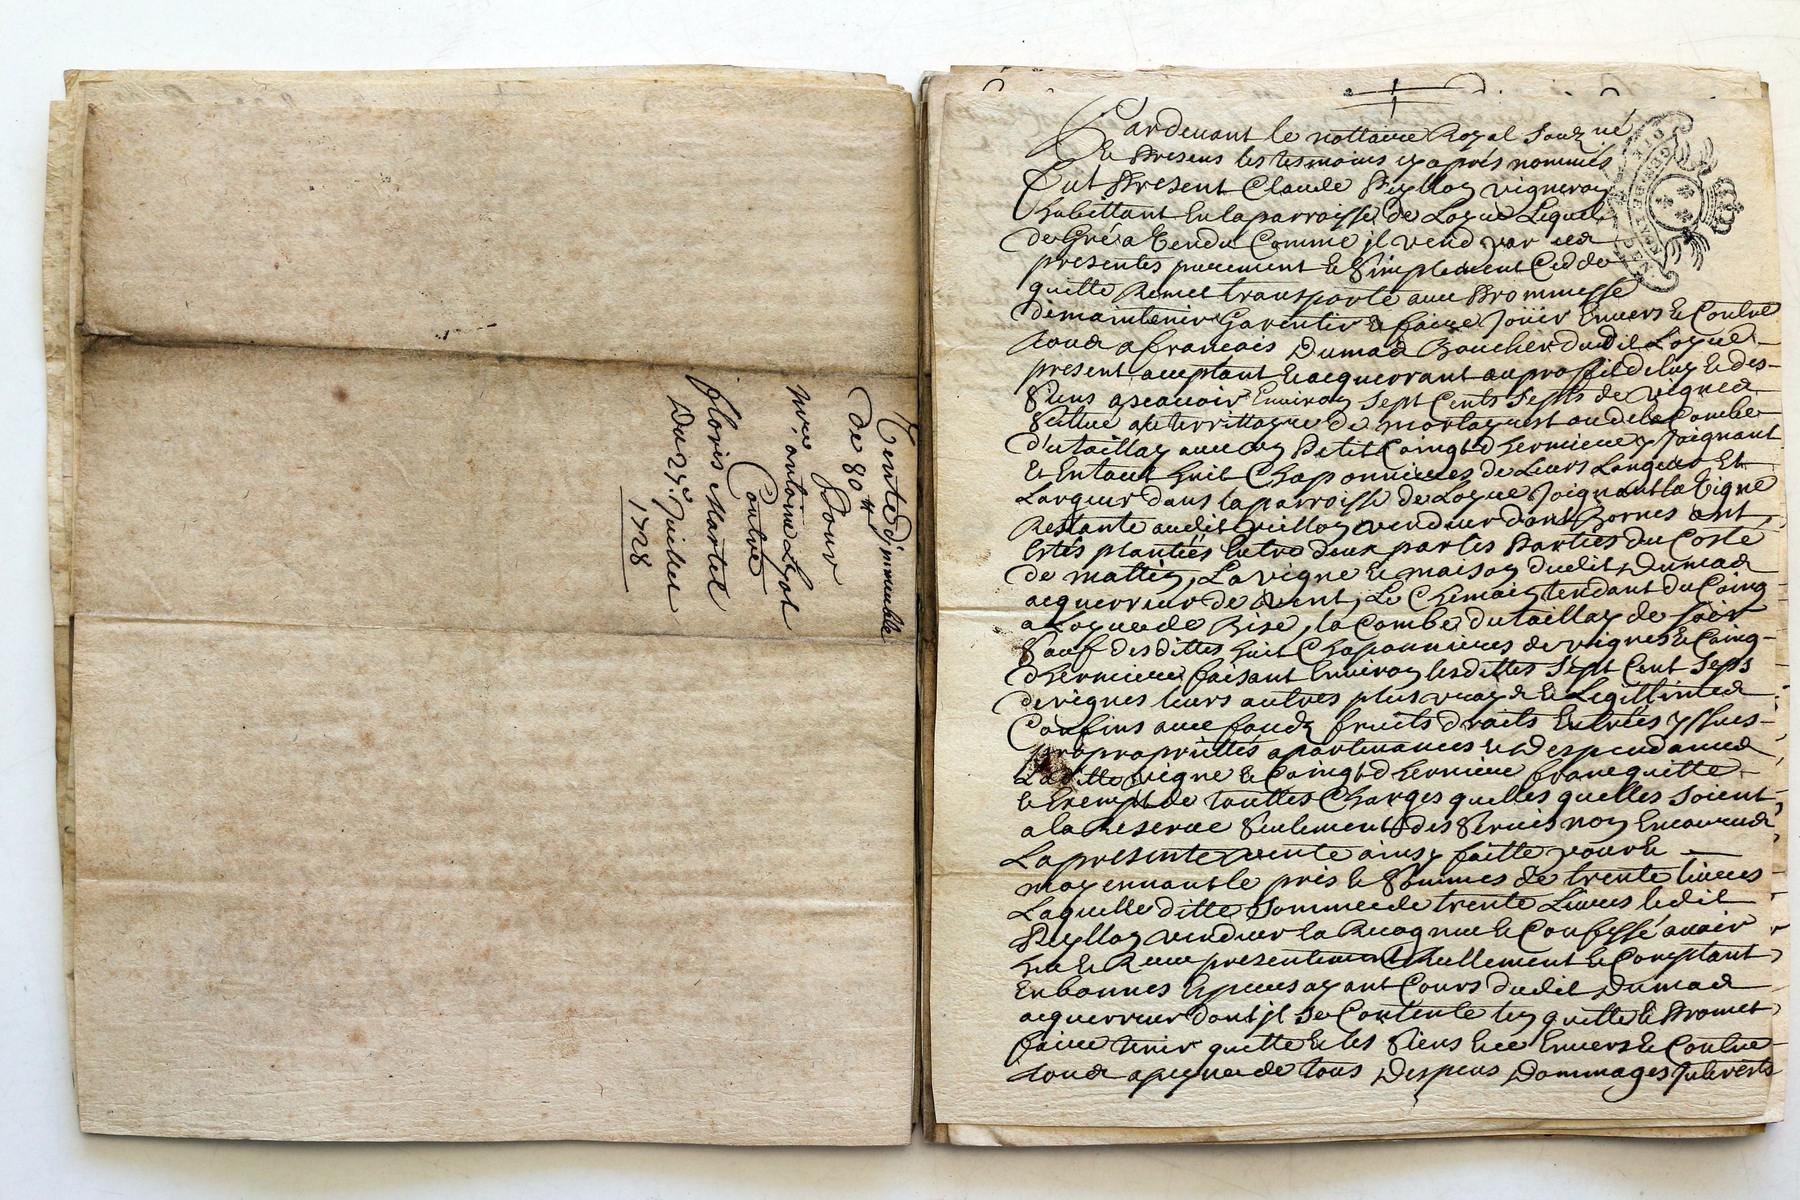 Vente d'immeuble
de 80 ₶
Pour
mre. antoine
Contre
floris Martel
Du 25e. Juillet
1728
Pardevant le nottaire Royal Souzné
Et Presens les tesmoins cy aprés nommés
fut Present Claude vigneron
habittant En la parroisse de Lequel
de Gré a Vendu Comme jl vend par ces
presentes purement Et Simplement Cedde
quitte Remet transporte avec Prommesse
de maintenir Garentir Et faire Joüir Envers Et Contre
tous a francois Dumas Boucher dudit
present acceptant Et acquerrant au proffit de luy Et des
Siens ascavoir Environ Sept Cents Seps de vignes
Sittué au territtoire de
avec un Petit Coing d hermiere y Joignant
Et Entout huit Chaponnieres de Leurs Longeur Et
Largeur dans la parroisse de Joignant la Vigne
Restante audit vendeur dont Bornes ont
Estés plantées Entre deux parties Parties du Costé
de mattin, La vigne Et maison dudit Dumas
acquerreur de Vent, Le Chemain tendant du Coing
a de Bise, la Combe de soir
Sauf des dittes huit Chaponnieres de vignes Et Coing
d hermiere faisant Environ lesdittes Sept Cent Seps
de vignes leurs autres plus vrays Et Legittimes
Confins avec fondz fruits droits Entrées yssues
propropriettés apartenances Et despendances
Laditte vigne Et Coing d hermiere franc quitte
Et Exempt de touttes Charges quelles quelles soient
a la Reserve Seulement des Servis non Encourus
La presente vente ainsy faitte pour Et
moyennant le pris Et Sommes de trente livres
Laquelle ditte Somme de trente Livres ledit
vendeur la Recognu Et Confessé avoir
heu Et Receu presentement Reellement Et Comptant
En bonnes Especes ayant Cours dudit Dumas
acquerreur dont jl se Contente len quitte Et Promet
faire tenir quitte Et les Siens Envers Et Contre
tous a peyne de tous Despens Dommages Interests